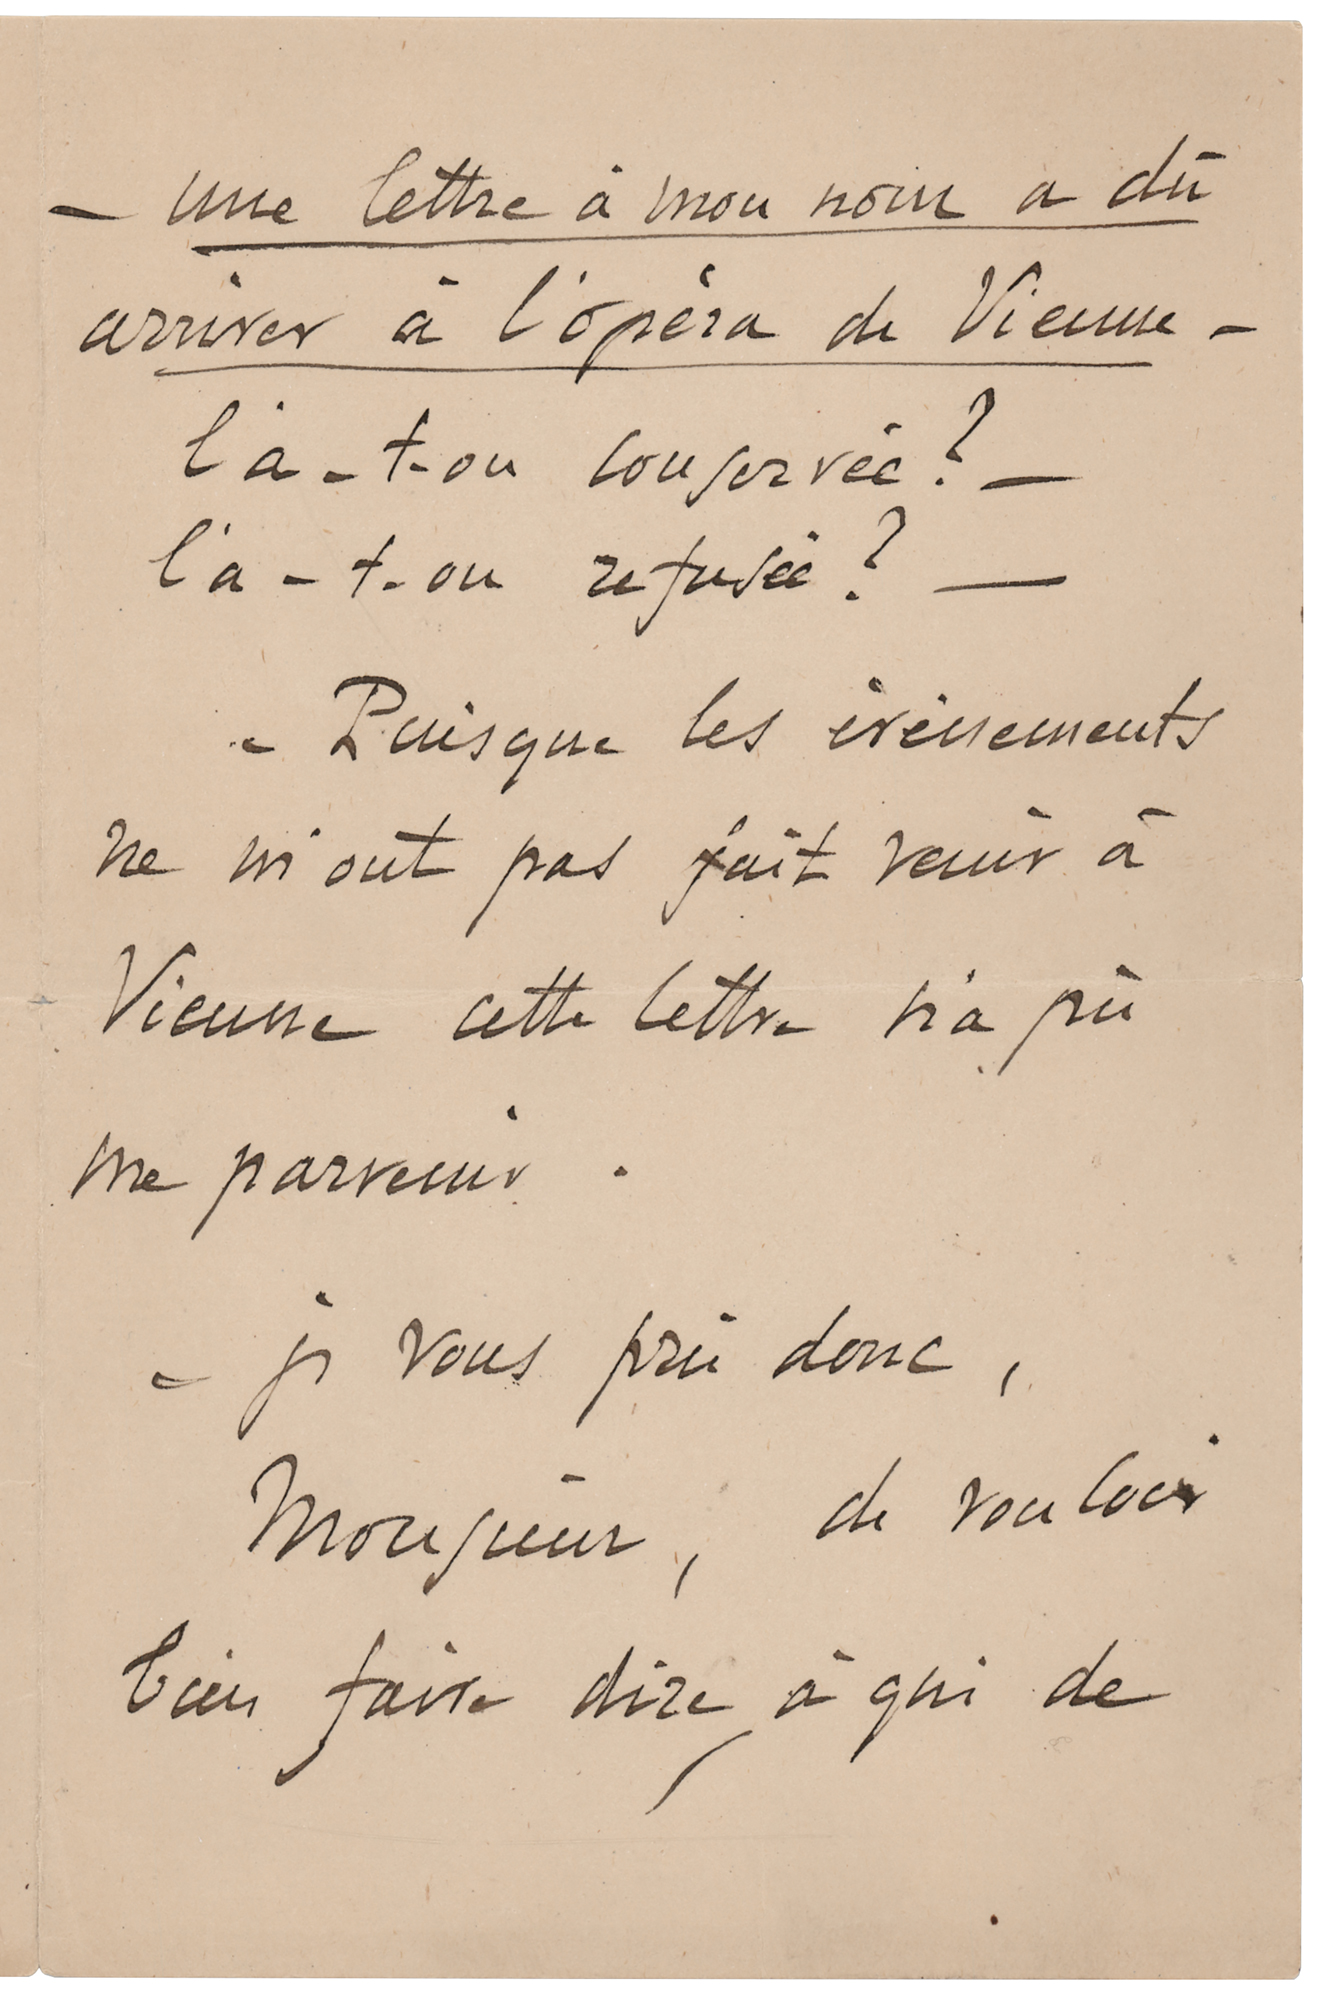 - une lettre à mon nom a dû
arriver à l'opéra de Vienne -
l'a-t-on conservée? -
l'a-t-on refusée? -
- Puisque les évènements
ne m'ont pas fait venir à
Vienne cette lettre n'a pu
me parvenir.
- je vous prie donc,
Monsieur, de vouloir
bien faire dire, à qui de